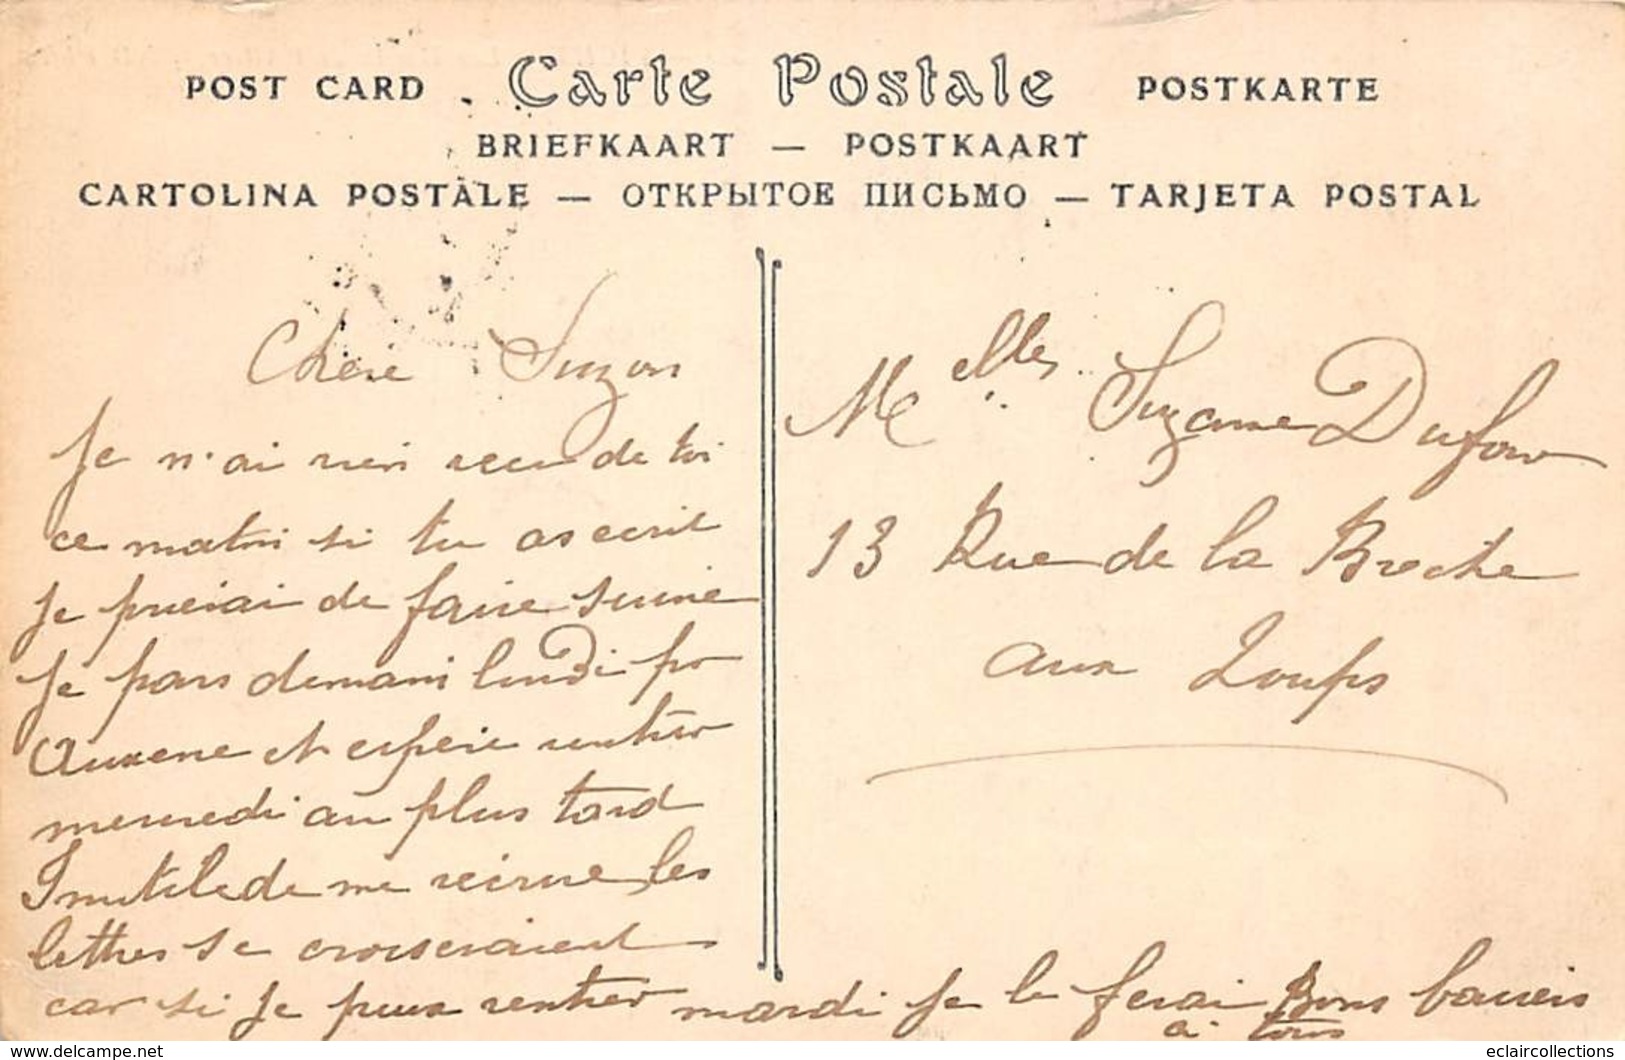 POST CARD Carte Postale POSTKARTE
BRIEFKAART — POSTKAART
CARTOLINA POSTALE — ОТКРЫТОЕ ПИСЬМО — TARJETA POSTAL
Chère Suzon
Je n'ai rien recu de toi
ce matin si tu as ecrit
Je prierai de faire suivre
Je pars demani lundi pr
Auxerre et espere rentrer
mercredi au plus tard
Inutile de me reecrire les
lettres se croiseraient
car si je peux rentrer mardi je le ferai Bons baisers
a tous
Melle Suzanne Dufour
13 Rue de la Breche
aux Loups
eclaircollections